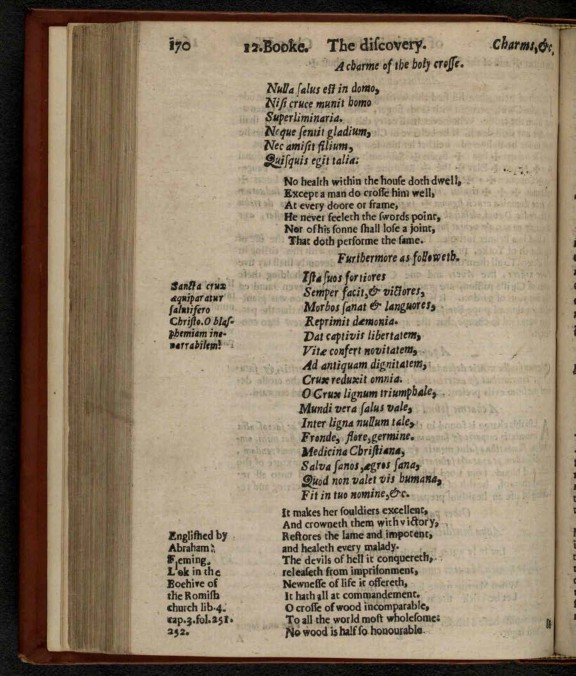 170 12.Booke. The diſcovery. Charms,&c.
A charme of the holy croſſe.
Nulla ſalus eſt in domo,
Niſi cruce munit homo
Superliminaria.
Neque ſentit gladium,
Nec amiſit filium,
Quiſquis egit talia:
No health within the houſe doth dwell,
Except a man do croſſe him well,
At every doore or frame,
He never feeleth the ſwords point,
Nor of his ſonne ſhall loſe a joint,
That doth performe the ſame.
Furthermore as followeth.
Iſta ſuos fortiores
Semper facit,& victores,
Morbos ſanat & languores,
Reprimit dæmonia.
Dat captivis libertatem,
Vitæ confert novitatem,
Ad antiquam dignitatem,
Crux reduxit omnia.
O Crux lignum triumphale,
Mundi vera ſalus vale,
Inter ligna nullum tale,
Fronde, flore,germine.
Medicina Chriſtiana,
Salva ſanos,ægros ſana,
Quod non valet vis humana,
Fit in tuo nomine,&c.
Sancta crux
æquiparatur
ſalutifero
Chriſto.O blaſ-
phemiam ine-
narrabilem!
It makes her ſouldiers excellent,
And crowneth them with victory,
Reſtores the lame and impotent,
and healeth every malady.
The devils of hell it conquereth,
releaſeth from impriſonment,
Newneſſe of life it offereth,
It hath all at commandement.
O croſſe of wood incomparable,
To all the world moſt wholeſome:
No wood is half ſo honourable
Engliſhed by
Abraham
Fleming.
Look in the
Beehive of
the Romiſh
church lib.4.
cap.3.fol.251.
252.